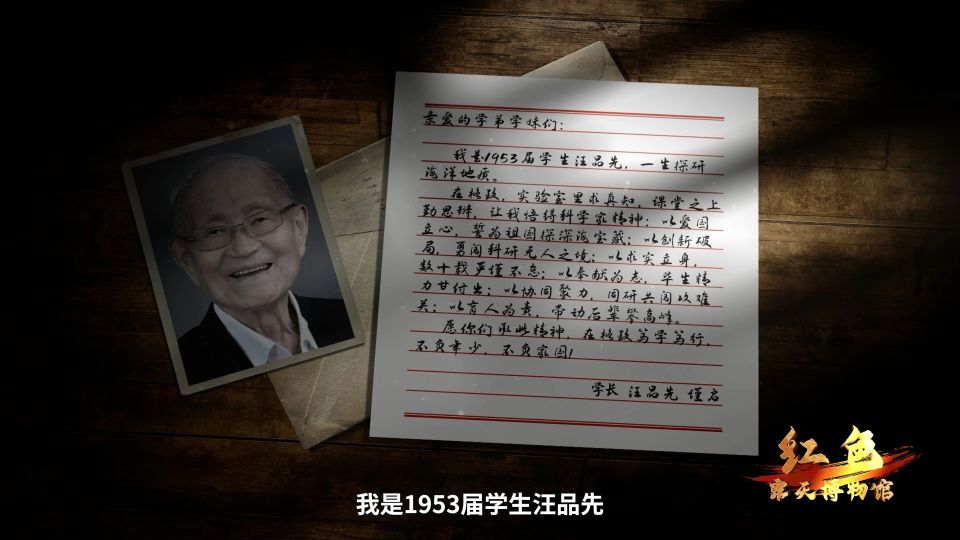 亲爱的学弟学妹们：
我是1953届学生汪品先，一生探研
海洋地质。
在格致，实验室里求真知，课堂之上
勤思辨，让我悟得科学家精神：以爱国
立心，誓为祖国探深海宝藏；以创新破
局，勇闯科研无人之境；以求实立身，
数十载严谨不怠；以奉献为志，毕生精
力甘付出；以协同聚力，同研共闯攻难
关；以育人为责，带动后辈攀高峰。
愿你们承此精神，在格致笃学笃行，
不负年少，不负家国！
学长 汪品先 谨启
红色
露天博物馆
我是1953届学生汪品先